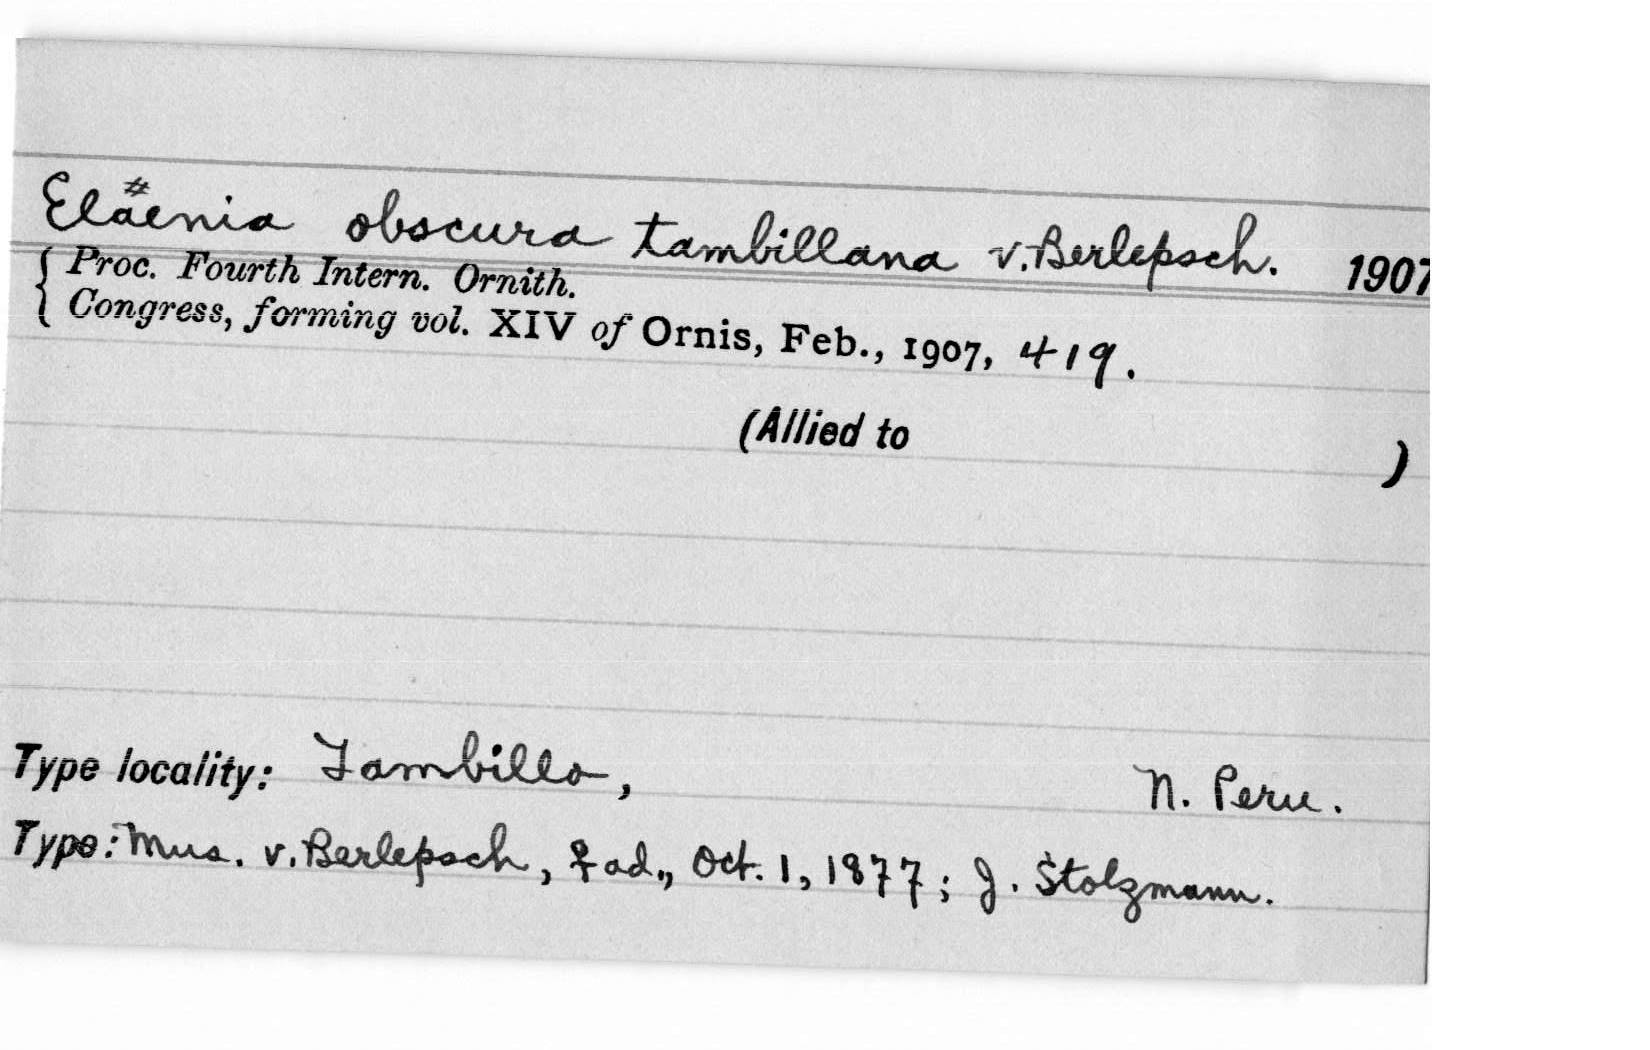 Elaenia obscura tambillana v. Berlepsch. 1907
Proc. Fourth Intern. Ornith.
Congress, forming vol. XIV of Ornis, Feb., 1907, 419.
(Allied to )
Type locality: Tambillo, N. Peru.
Type: Mus. v. Berlepsch, ♀ ad., Oct. 1, 1877; J. Stolzmann.